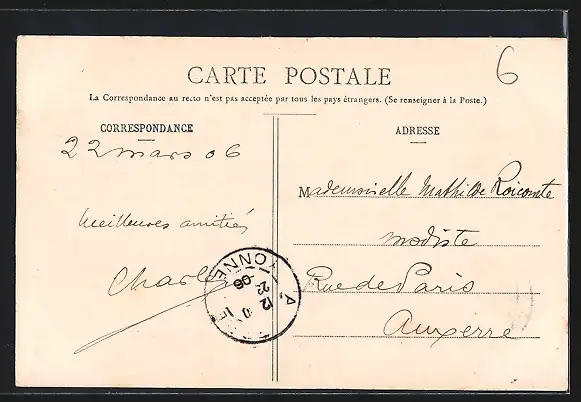 6
CARTE POSTALE
La Correspondance au recto n'est pas acceptée par tous les pays étrangers. (Se renseigner à la Poste.)
CORRESPONDANCE
22 mars 06
Meilleures amitiés
Charles
ADRESSE
Mademoiselle Mathilde
modiste
Rue de Paris
Auxerre
YONNE
22
06